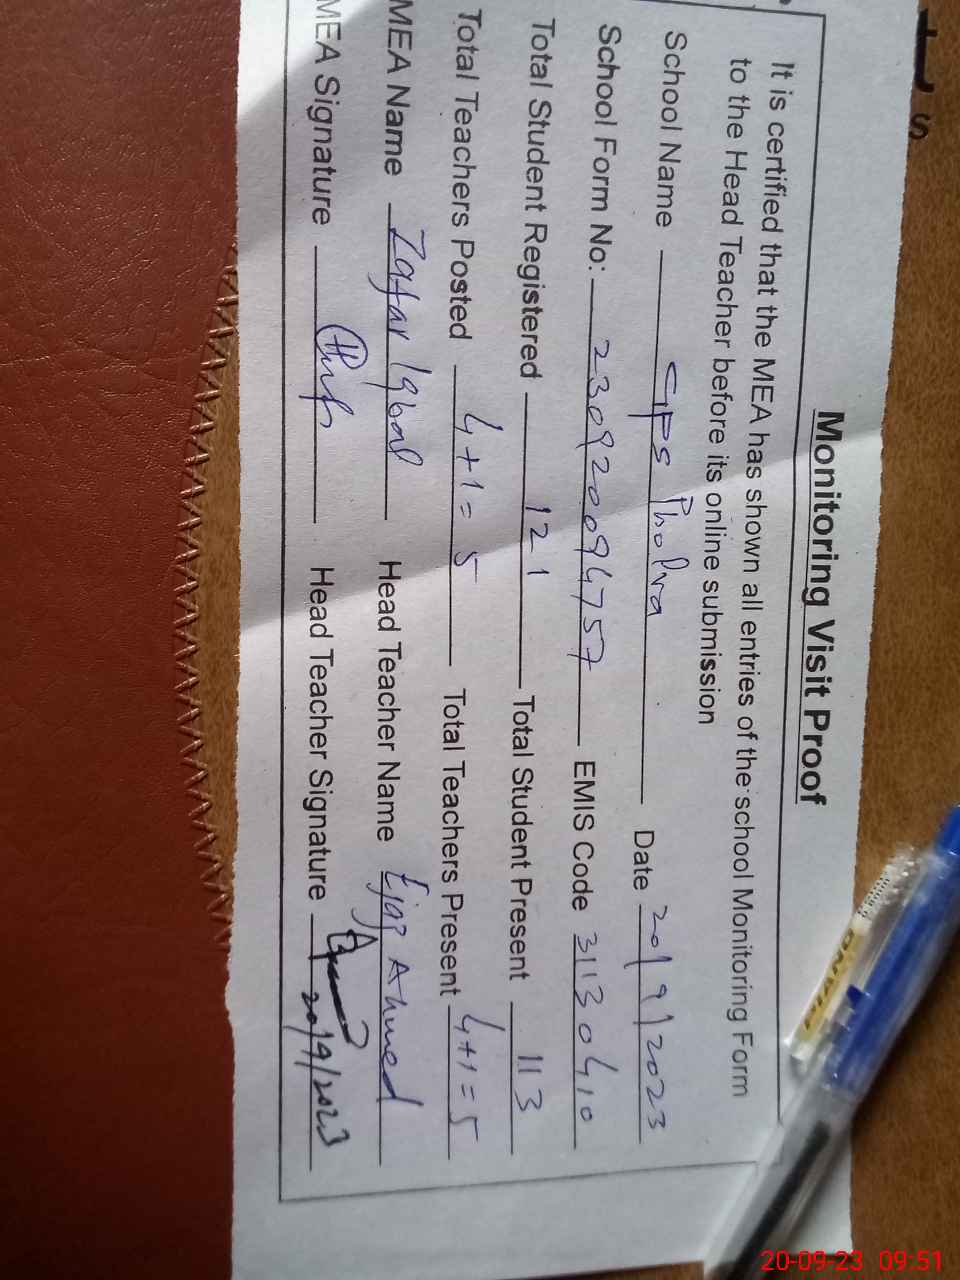 Monitoring Visit Proof
It is certified that the MEA has shown all entries of the school Monitoring Form
to the Head Teacher before its online submission
School Name GPS Pholra Date 20/9/2023
School Form No: 230920094757 EMIS Code 31130410
Total Student Registered 121 Total Student Present 113
Total Teachers Posted 4+1=5 Total Teachers Present 4+1=5
MEA Name Zafar Iqbal Head Teacher Name Ejaz Ahmed
MEA Signature Head Teacher Signature
20/9/2023
PIANO
s
20-09-23 09:51